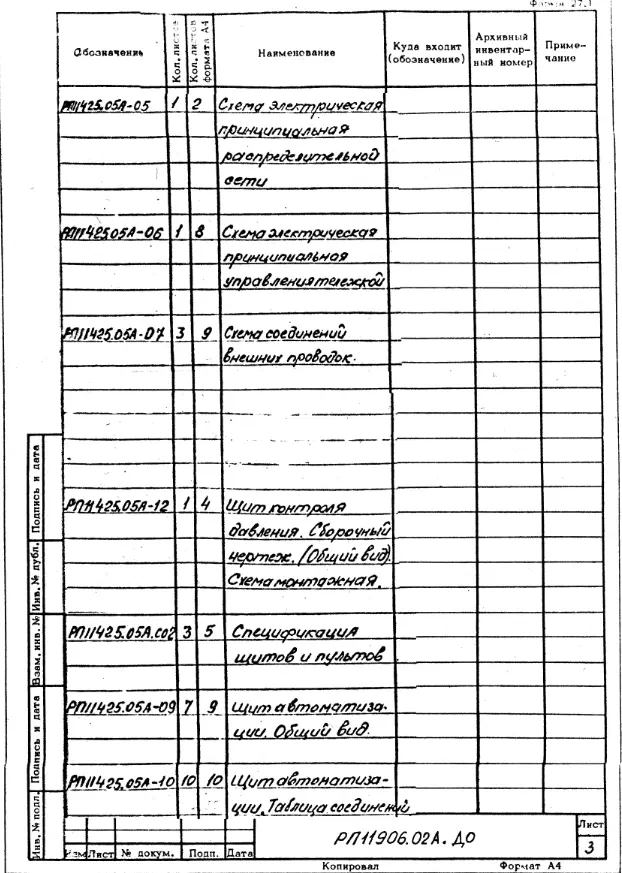 Форма 27.1
Обозначение
Кол. листов
Кол. листов формата А4
Наименование
Куда входит (обозначение)
Архивный инвентарный номер
Примечание
РП11425.05А-05 1 2 Схема электрическая
принципиальная
распределительной
сети
РП11425.05А-06 1 8 Схема электрическая
принципиальная
управления тележкой
РП11425.05А-07 3 9 Схема соединений
внешних проводок.
РП11425.05А-12 1 4 Щит контроля
давления. Сборочный
чертеж. (Общий вид).
Схема монтажная.
РП11425.05А.С02 3 5 Спецификация
щитов и пультов
РП11425.05А-09 7 9 Щит автоматиза-
ции. Общий вид.
РП11425.05А-10 10 10 Щит автоматиза-
ции. Таблица соединений
Инв. № подл.
Подпись и дата
Взам. инв. №
Инв. № дубл.
Подпись и дата
Изм Лист № докум. Подп. Дата
РП11906.02А. ДО
Лист
3
Копировал Формат А4